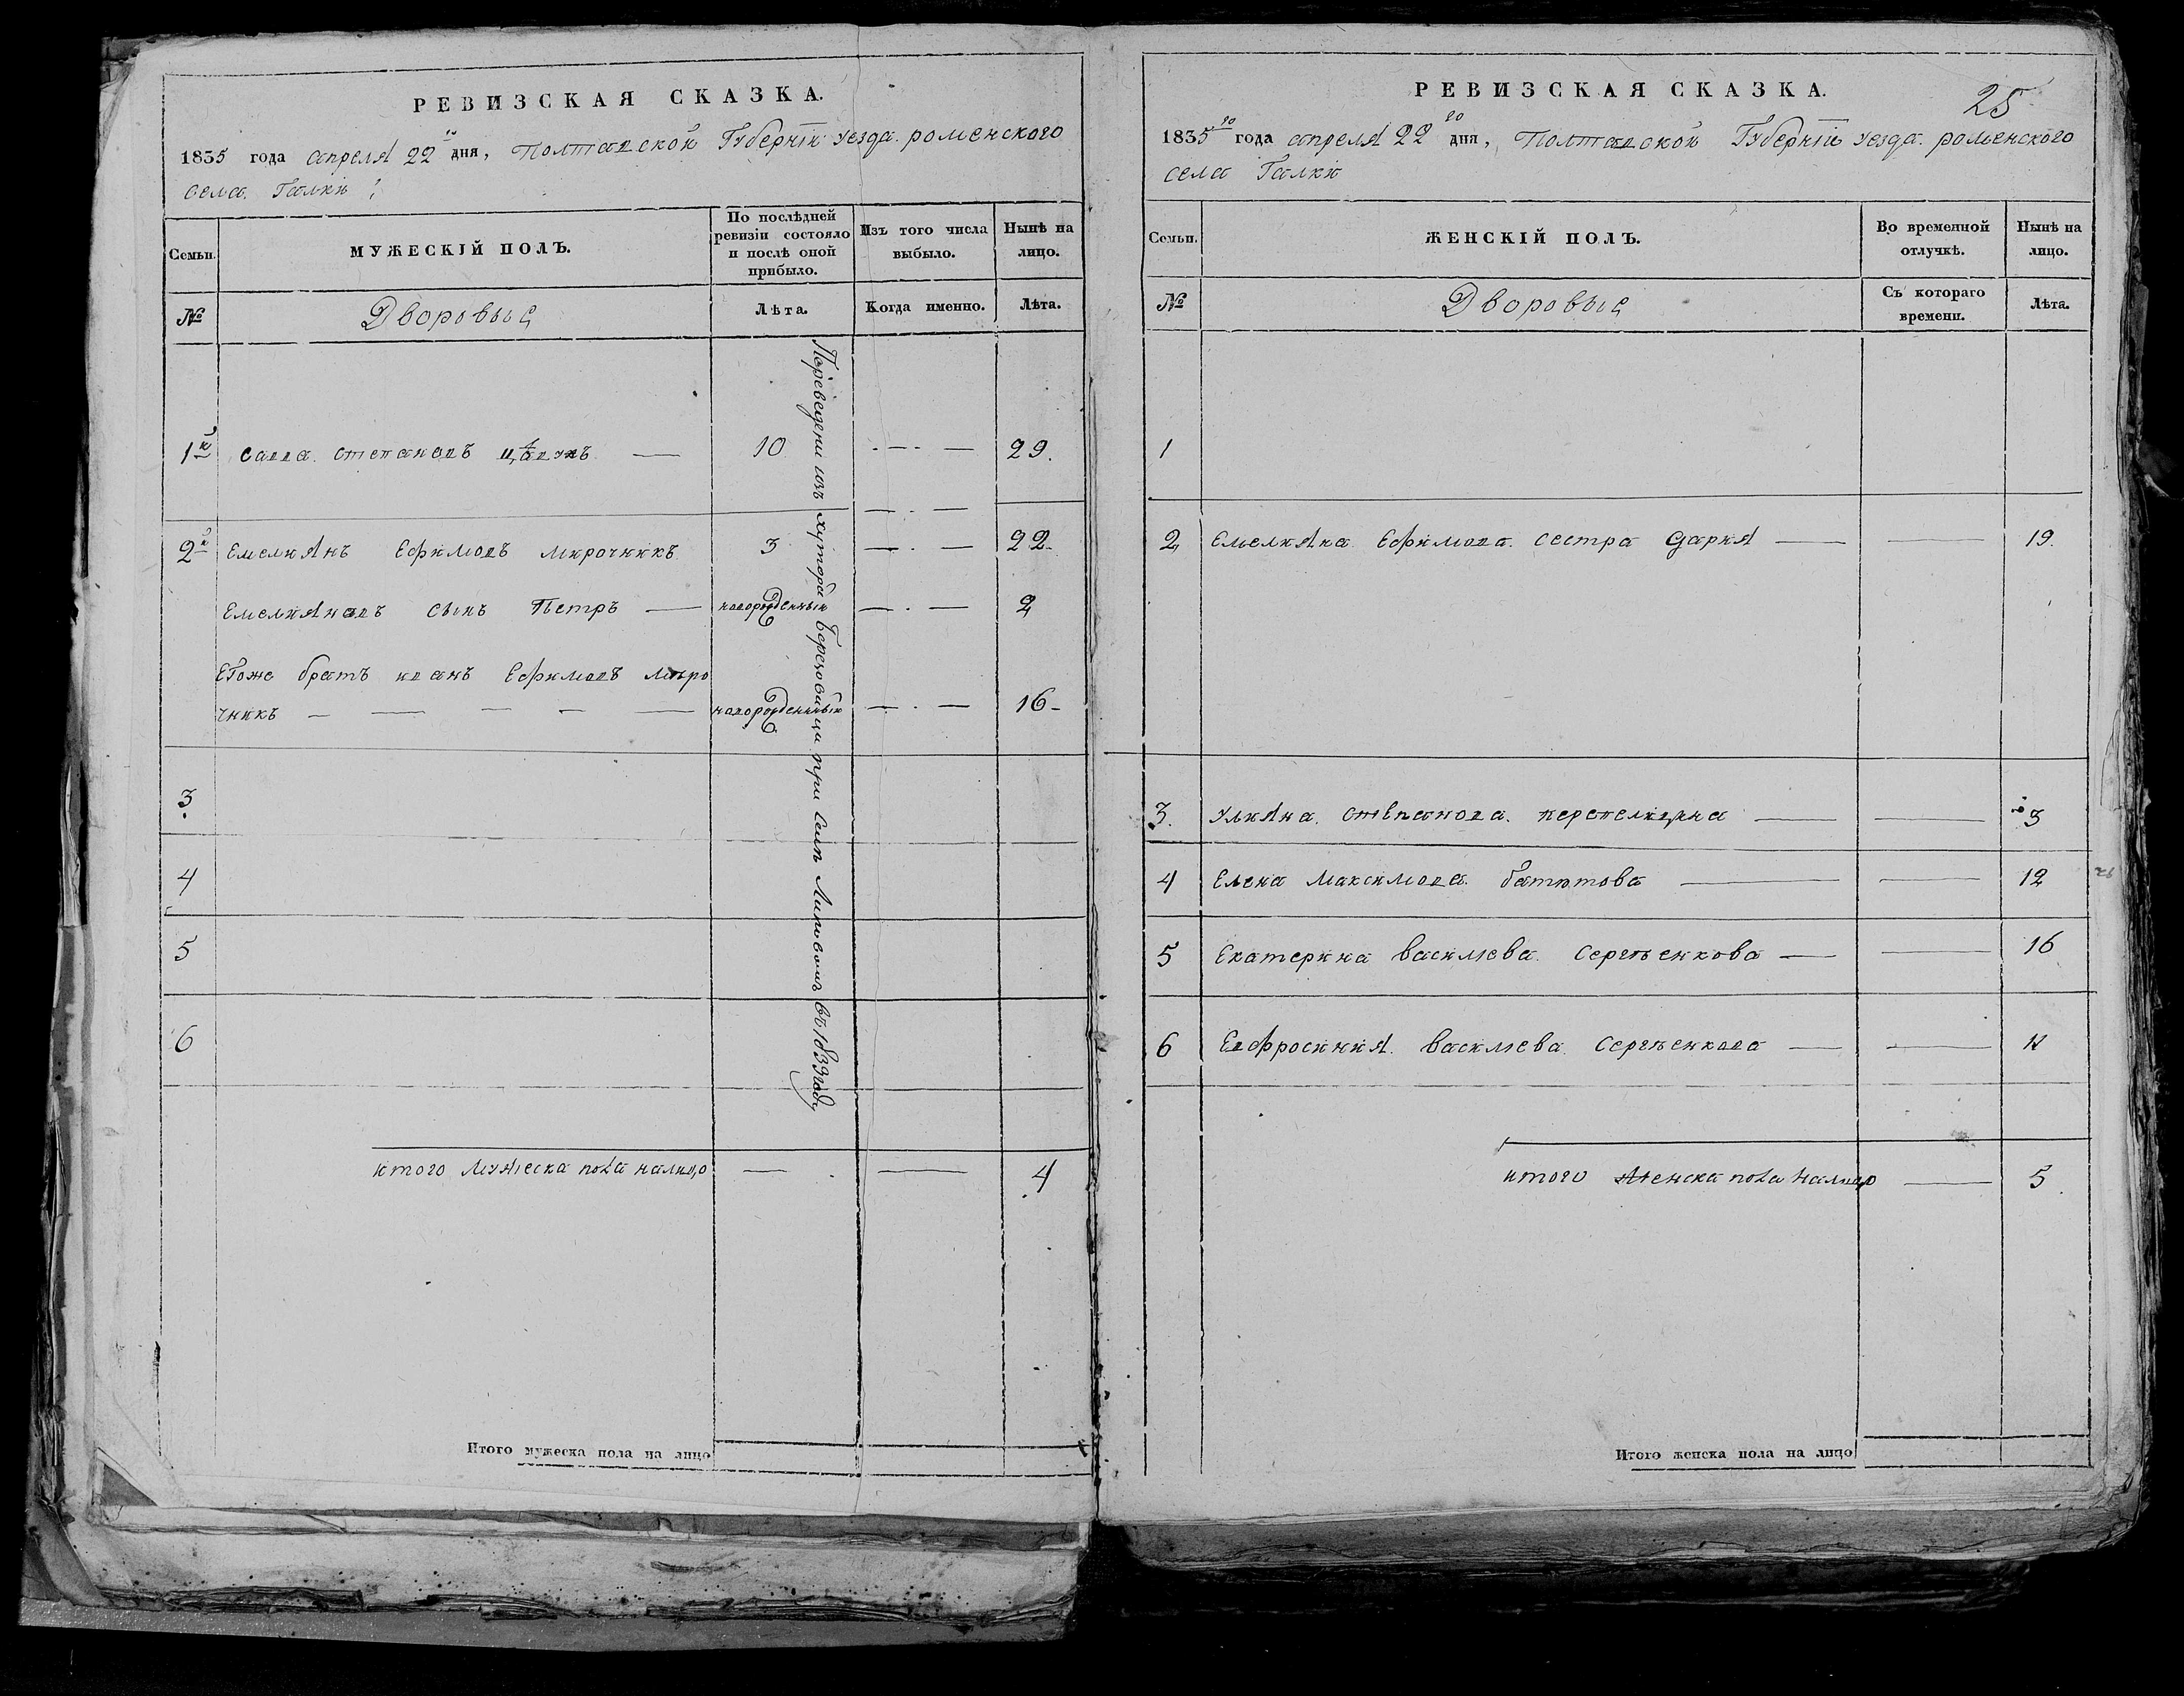 РЕВИЗСКАЯ СКАЗКА.
1835 года апреля 22 дня, Полтавской Губерніи уезда. роменского
села. Галки
Семьи.
МУЖЕСКІЙ ПОЛЪ.
По послѣдней ревизіи состояло и послѣ оной прибыло.
Изъ того числа выбыло.
Нынѣ на лицо.
№
Дворовые
Лѣта.
Когда именно.
Лѣта.
Переведени изъ хутора при селѣ въ 1839 году
1й Савва. степановъ — 10 29.
2й Емелиянъ Ефимовъ мирочникъ 3 22
Емелияновъ сынъ Петръ — новорожденный 2
Егоже братъ иванъ Ефимовъ миро
чникъ — новорожденный 16
3
4
5
6
итого мужеска пола налицо — 4
Итого мужеска пола на лицо
РЕВИЗСКАЯ СКАЗКА.
25
1835 года апреля 22 го дня, Полтавской Губерніи уезда. роменского
села Галки
Семьи.
ЖЕНСКІЙ ПОЛЪ.
Во временной отлучкѣ.
Нынѣ на лицо.
№
Дворовые
Съ котораго времени.
Лѣта.
1
2 Емелияна Ефимова. сестра Дария — 19.
3. Улияна. степанова. перепелицина —
4 Елена Максимова. батютова — 12
5 Екатерина василева. Сергѣенкова — 16
6 Евфросиния. василева. Сергѣенкова —
итого женска пола налицо — 5
Итого женска пола на лицо